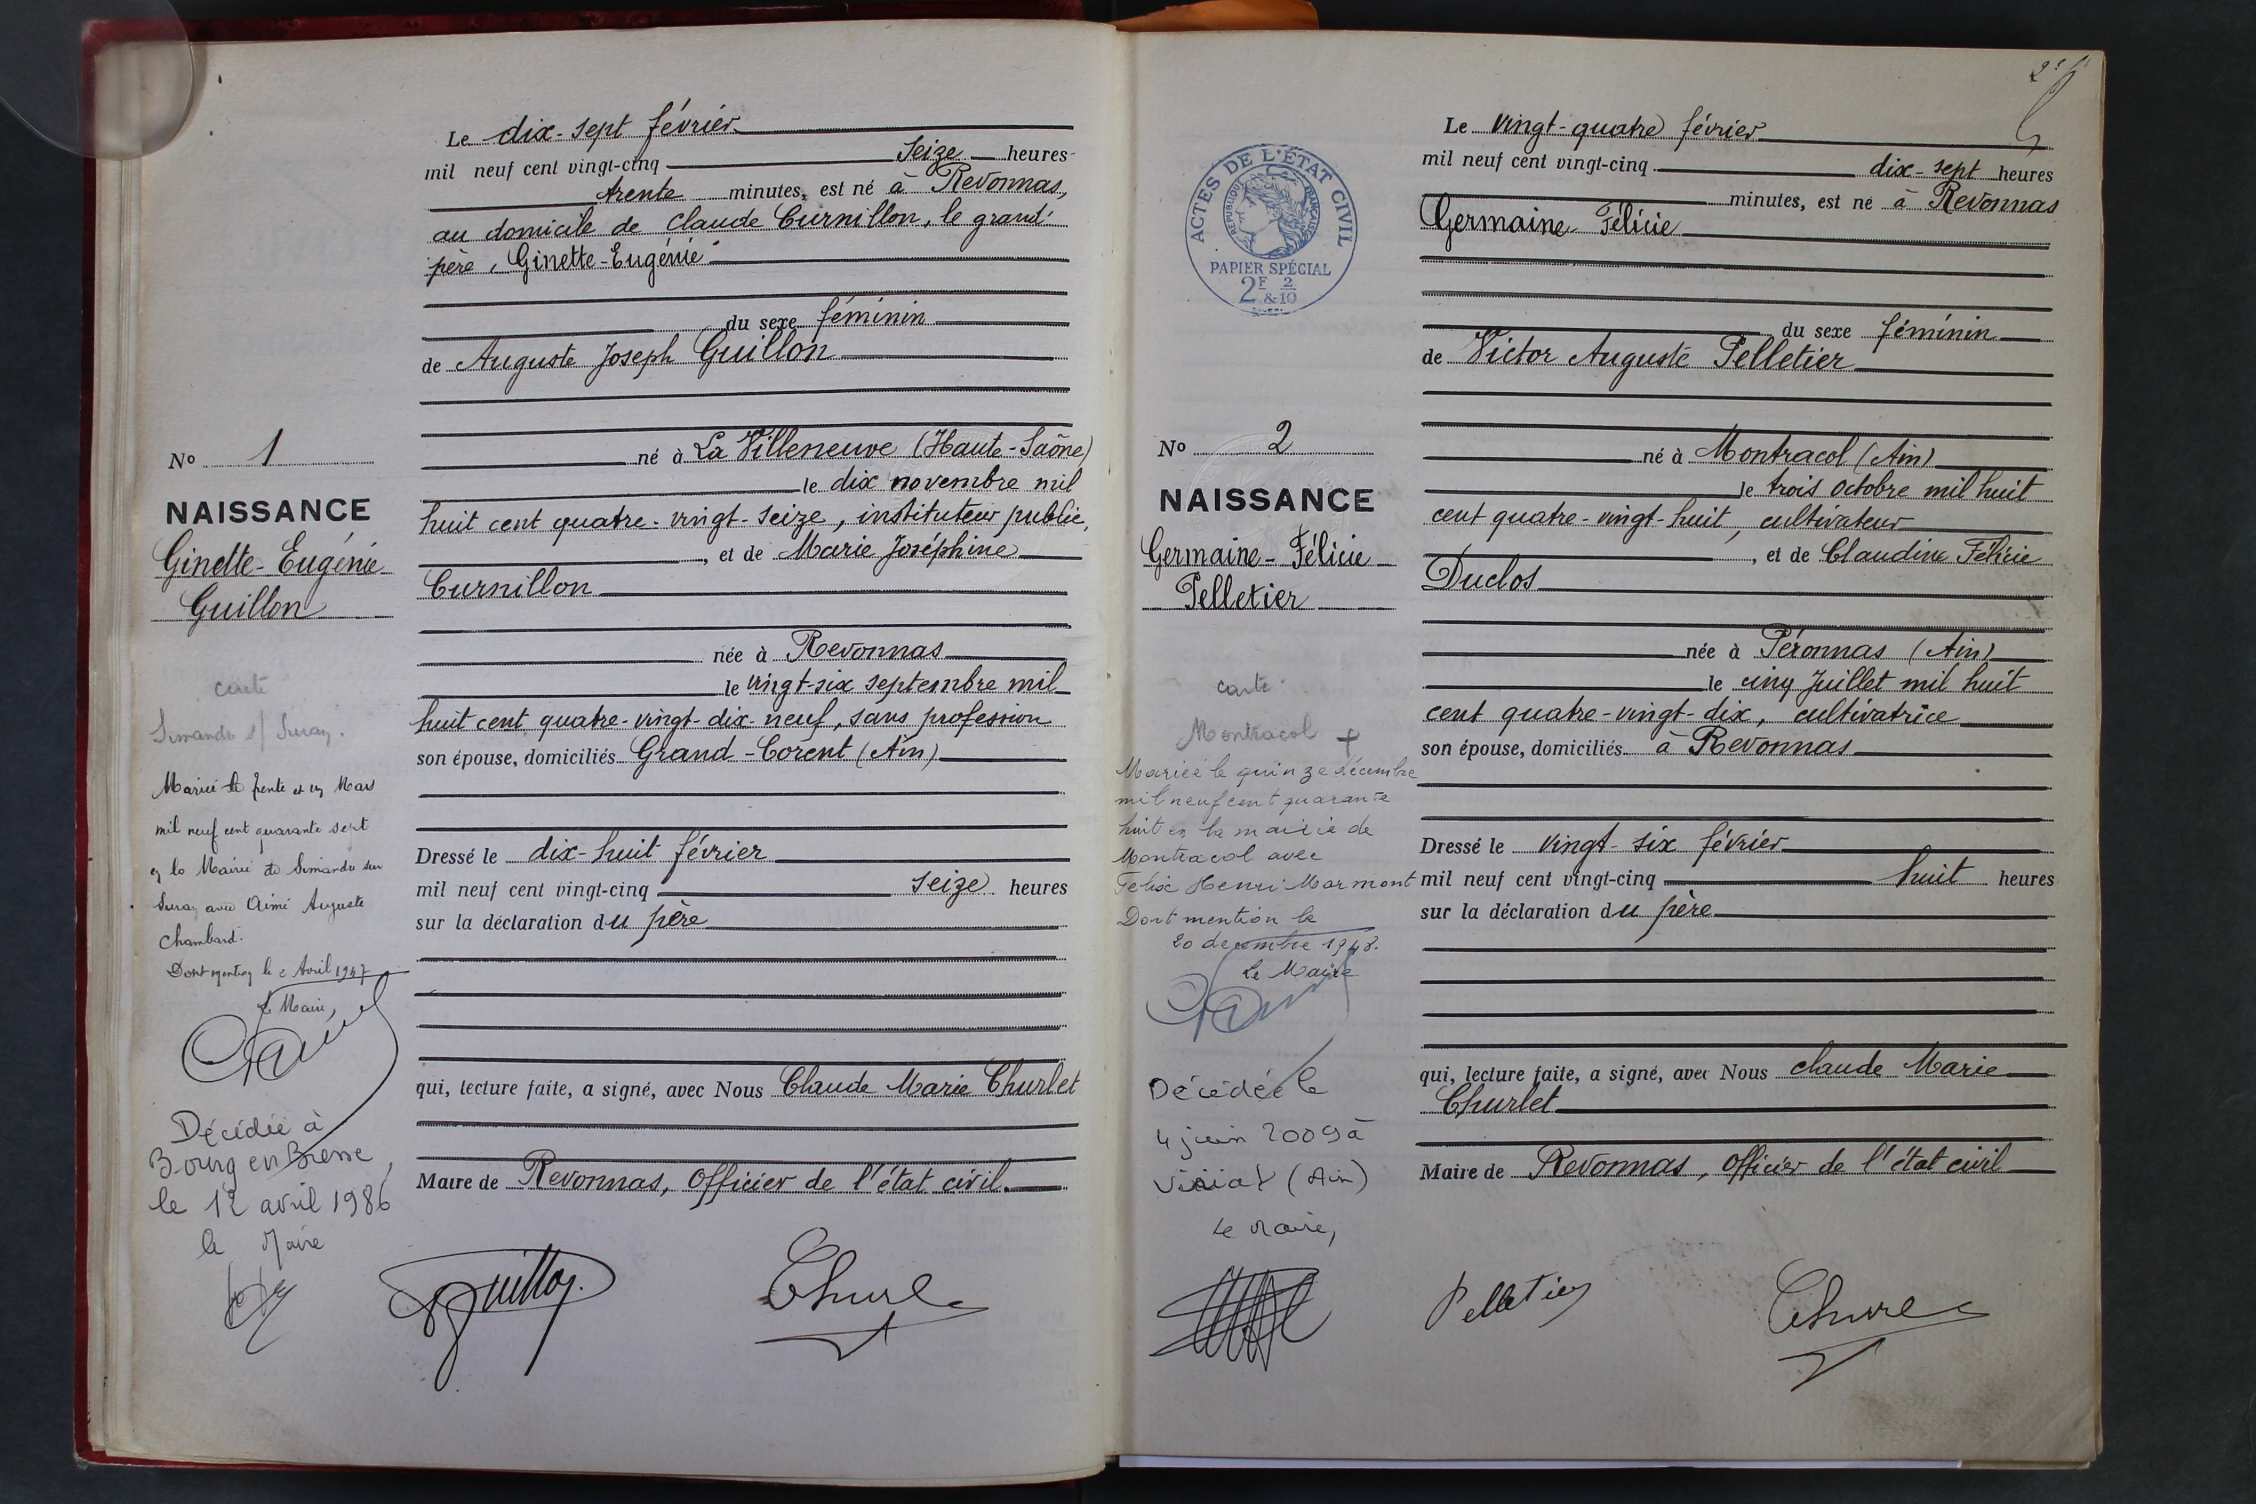 Le dix-sept février
mil neuf cent vingt-cinq seize heures
trente minutes, est né à Revonnas,
au domicile de Claude Curnillon, le grand-
père, Ginette-Eugénie
du sexe féminin
de Auguste Joseph Guillon
né à La Villeneuve (Haute-Saône)
le dix novembre mil
huit cent quatre-vingt-seize, instituteur public,
, et de Marie Joséphine
Curnillon
née à Revonnas
le vingt-six septembre mil
huit cent quatre-vingt-dix-neuf, sans profession
son épouse, domiciliés Grand-Corent (Ain)
Dressé le dix-huit février
mil neuf cent vingt-cinq seize heures
sur la déclaration du père
qui, lecture faite, a signé, avec Nous Claude Marie Churlet
Maire de Revonnas, Officier de l'état civil.
No 1
NAISSANCE
Ginette-Eugénie
Guillon
carte
Simandre s/ Suran.
Mariée le trente et un Mars
mil neuf cent quarante sept
en la Mairie de Simandre sur
Suran avec Aimé Auguste
Chambard.
Dont mention le 2 Avril 1947
Le Maire,
Décédée à
Bourg en Bresse,
le 12 avril 1986
le Maire
Guillon
Churlet
2
Le vingt-quatre février
mil neuf cent vingt-cinq dix-sept heures
minutes, est né à Revonnas
Germaine-Félicie
du sexe féminin
de Victor Auguste Pelletier
né à Montracol (Ain)
le trois octobre mil huit
cent quatre-vingt-huit, cultivateur
, et de Claudine Félicie
Duclos
née à Péronnas (Ain)
le cinq Juillet mil huit
cent quatre-vingt-dix, cultivatrice
son épouse, domiciliés à Revonnas
Dressé le vingt-six février
mil neuf cent vingt-cinq huit heures
sur la déclaration du père
qui, lecture faite, a signé, avec Nous Claude Marie
Churlet
Maire de Revonnas, Officier de l'état civil
ACTES DE L'ÉTAT CIVIL
RÉPUBLIQUE FRANÇAISE
PAPIER SPÉCIAL
2F 2
& 10
No 2
NAISSANCE
Germaine-Félicie
Pelletier
carte
Montracol +
Mariée le quinze décembre
mil neuf cent quarante
huit en la mairie de
Montracol avec
Felix Henri Marmont
Dont mention le
20 decembre 1948.
Le Maire
Décédée le
4 juin 2009 à
Viriat (Ain)
Le Maire,
Pelletier
Churlet